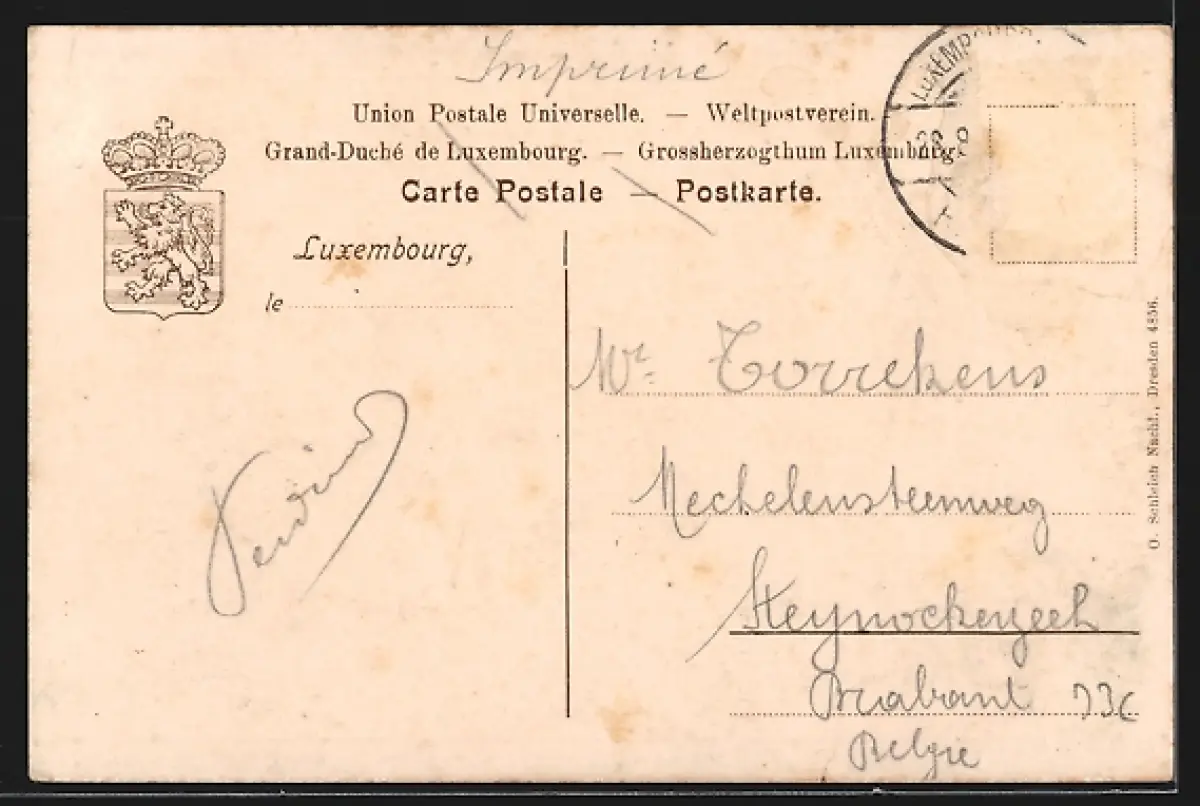 Imprimé
Union Postale Universelle. — Weltpostverein.
Grand-Duché de Luxembourg. — Grossherzogthum Luxemburg.
Carte Postale — Postkarte.
LUXEMBOURG
Luxembourg,
le
Mr. Torrekens
Mechelensteenweg
Steynockerzeel
Brabant
Belgie
O. Schleich Nachf., Dresden 4856.